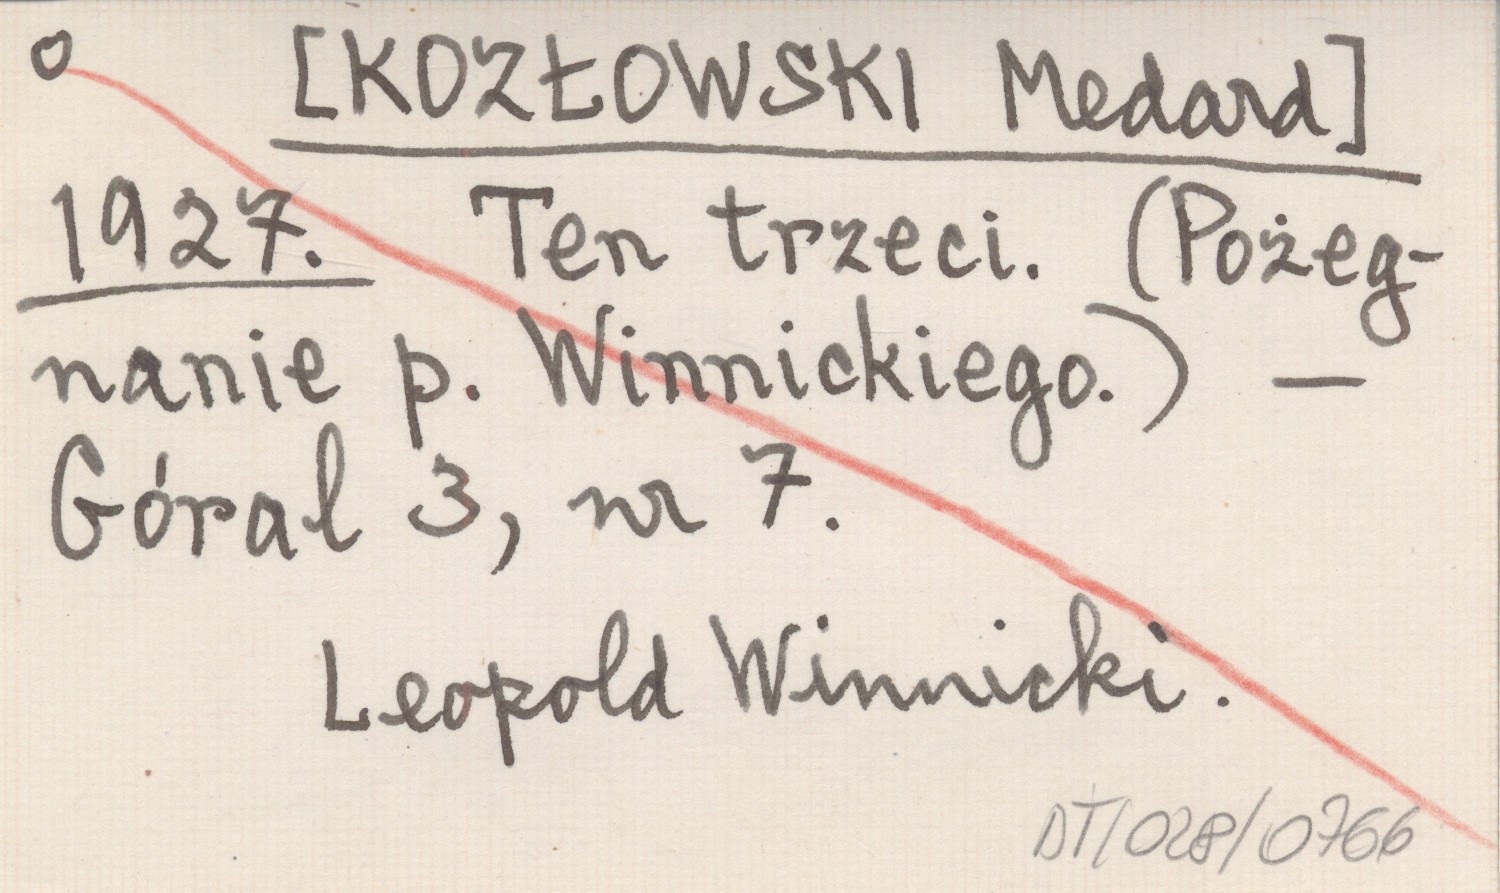 [KOZŁOWSKI Medard]
1927. Ten trzeci. (Pożeg-
nanie p. Winnickiego.) —
Góral 3, nr 7.
Leopold Winnicki.
DT/028/0766